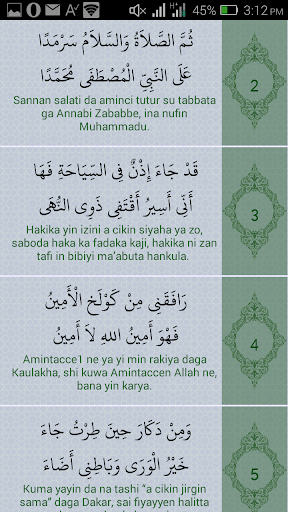 45% 3:12 PM
ثُمَّ الصَّلاَةُ وَالسَّلاَمُ سَرْمَدًا
عَلَى النَّبِيِّ الْمُصْطَفَى مُحَمَّدًا
2
Sannan salati da aminci tutur su tabbata
ga Annabi Zababbe, ina nufin
Muhammadu.
قَدْ جَاءَ إِذْنٌ فِى السِّيَاحَةِ فَهَا
أَنِّى أَسِيرُ أَقْتَفِى ذَوِى النُّهَى
3
Hakika yin izini a cikin siyaha ya zo,
saboda haka ka fadaka kaji, hakika ni zan
tafi in bibiyi ma'abuta hankula.
رَافَقَنِى مِنْ كَوْلَخَ الْأَمِينُ
فَهْوَ أَمِينُ اللهِ لاَ أَمِينُ
4
Amintacce1 ne ya yi min rakiya daga
Kaulakha, shi kuwa Amintaccen Allah ne,
bana yin karya.
وَمِنْ دَكَارَ حِينَ طِرْتُ جَاءَ
خَيْرُ الْوَرَى وَبَاطِنِى أَضَاءَ
5
Kuma yayin da na tashi "a cikin jirgin
sama" daga Dakar, sai fiyayyen halitta